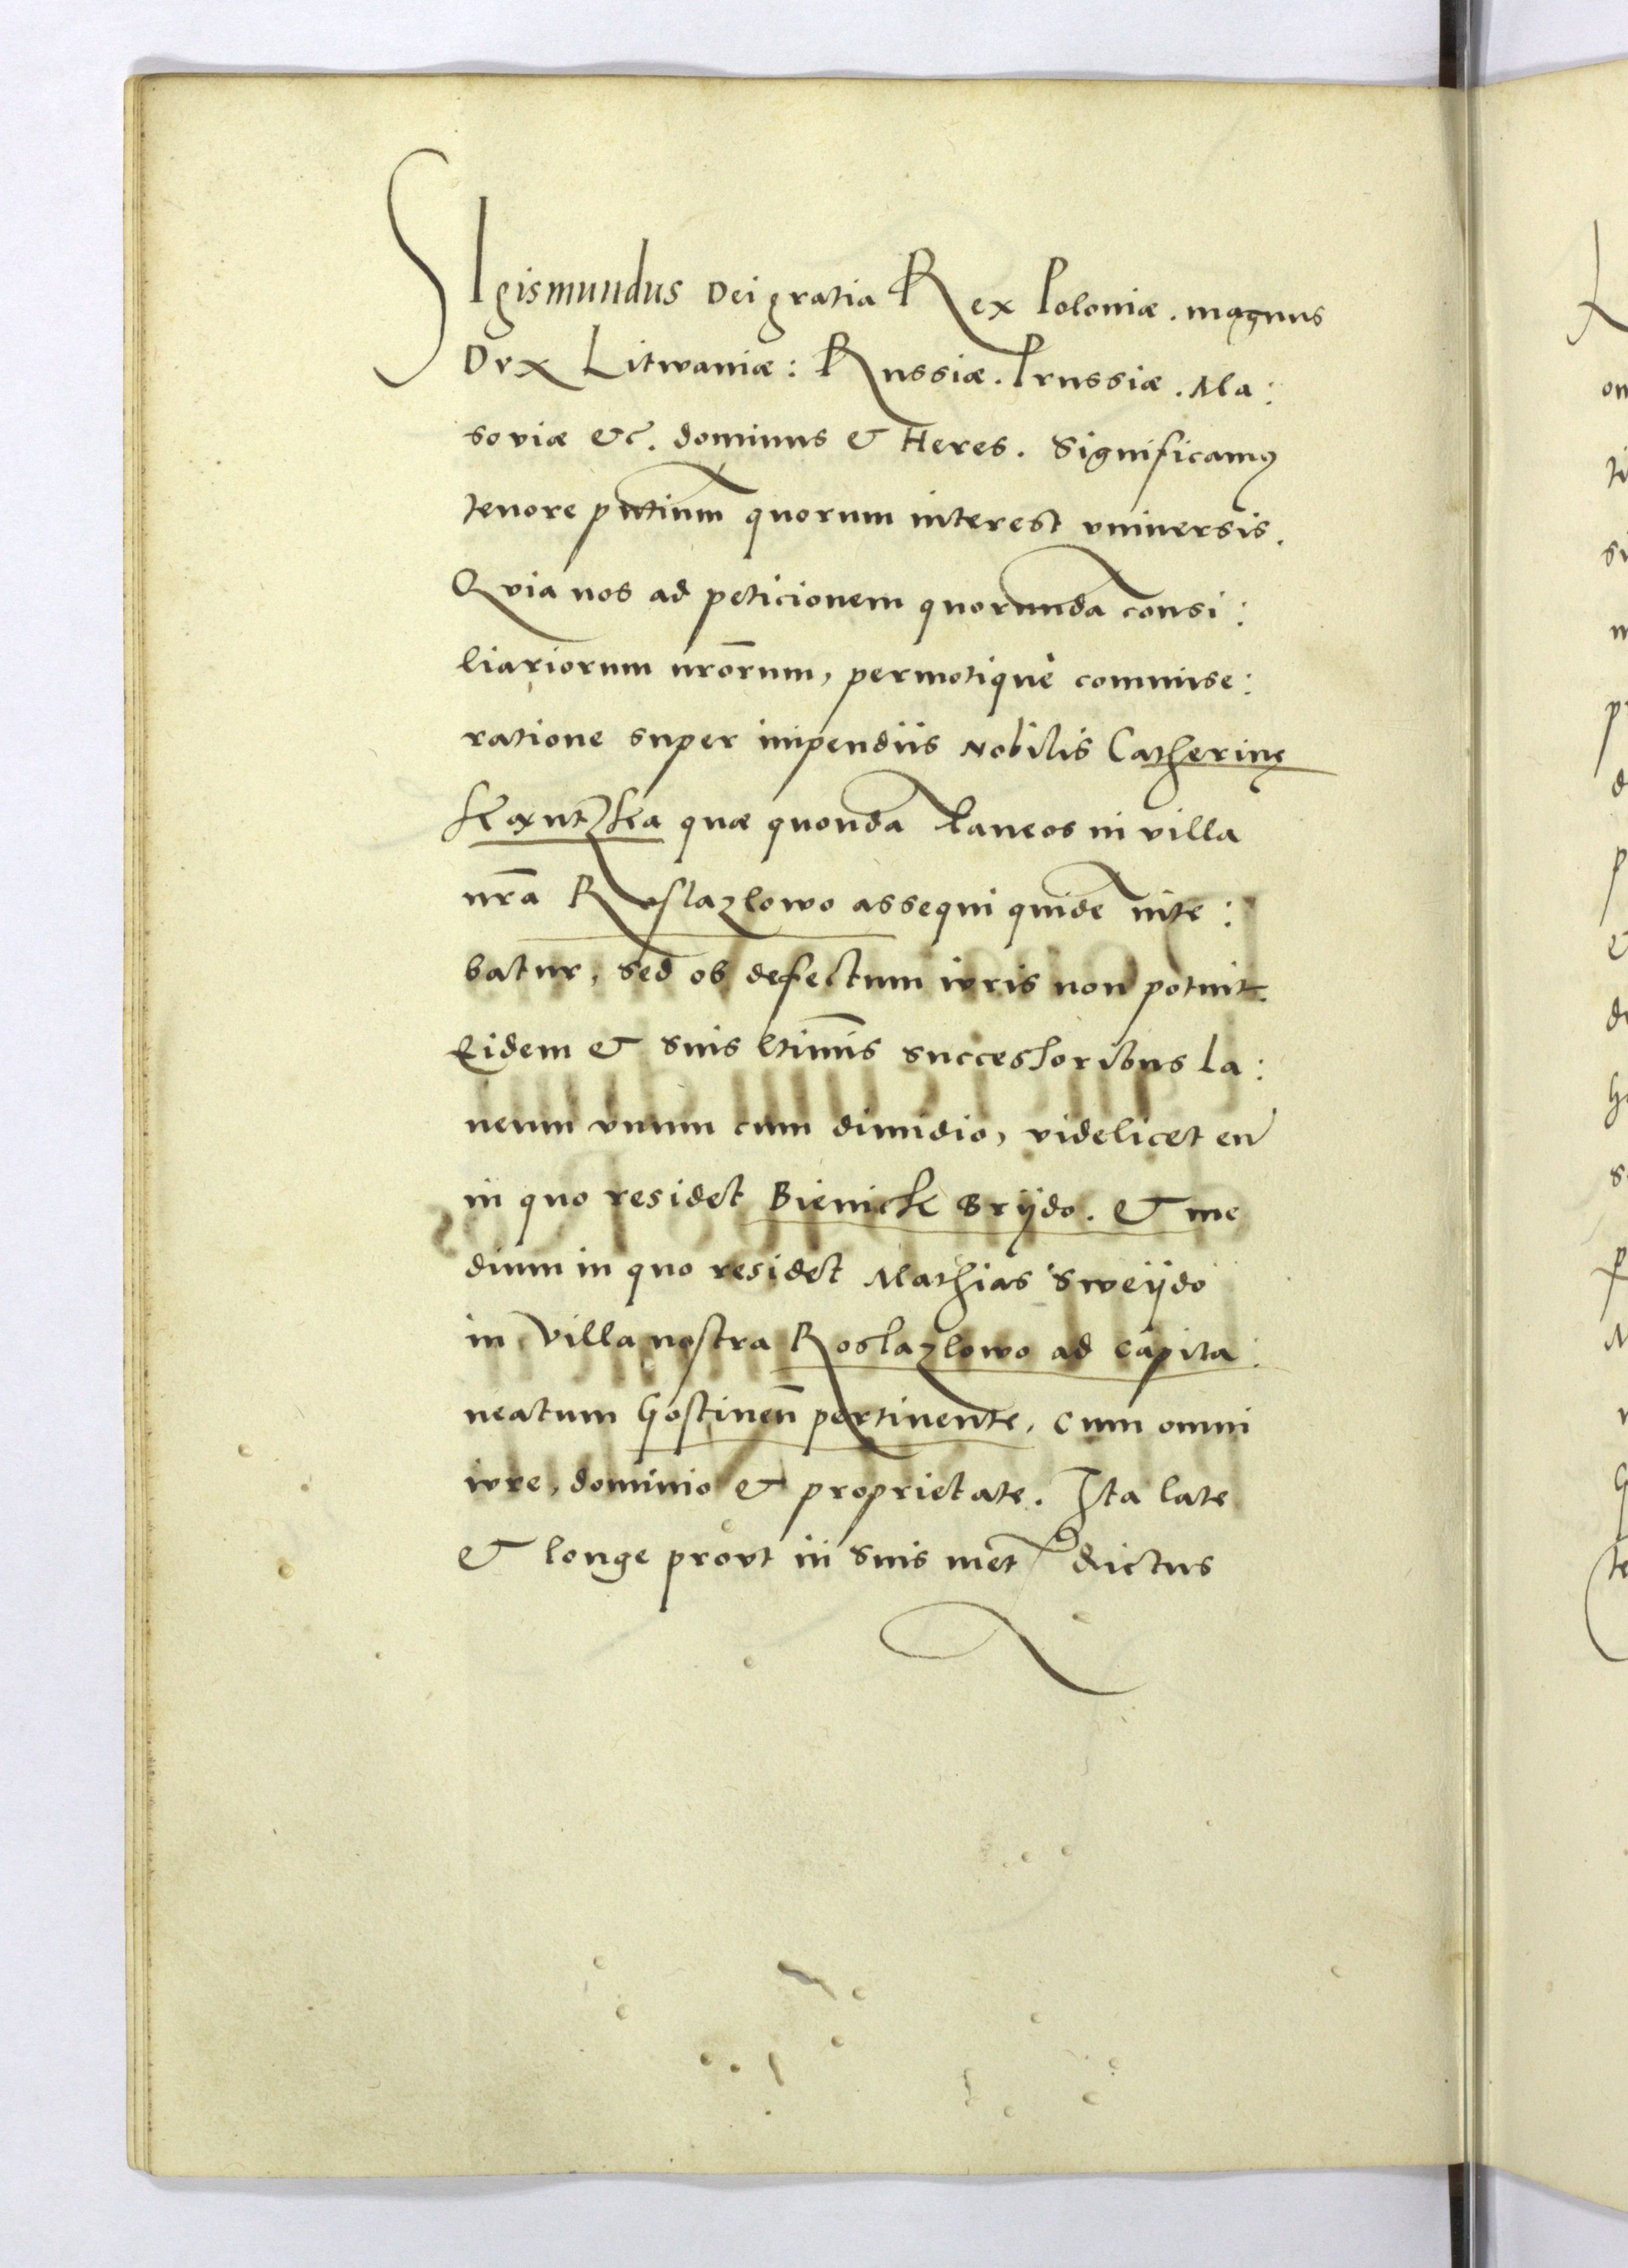 SIgismundus Dei gratia Rex Poloniæ. magnus
Dvx Litwaniæ: Russiæ. Prussiæ. Ma:
soviæ &c. dominus & Heres. Significamꝯ
tenore pn̄tium quorum interest vniuersis.
Qvia nos ad peticionem quorundā consi:
liariorum nr̄orum, permotique commise:
ratione super impendiis Nobilis Catherinę
quæ quondā Laneos in villa
nr̄a Roslazlowo assequi quidē nite:
batur, sed ob defectum ivris non potuit.
Eidem & suis ltimis successoribus la:
neum vnum cum dimidio, videlicet eū
in quo residet Bienick Brÿdo. & me
dium in quo residet Mathias Sweÿdo
in villa nostra Roslazlowo ad Capita:
neatum Gostinen̄ pertinente, cum omni
ivre, dominio & proprietate. Ita late
& longe provt in suis met dictus